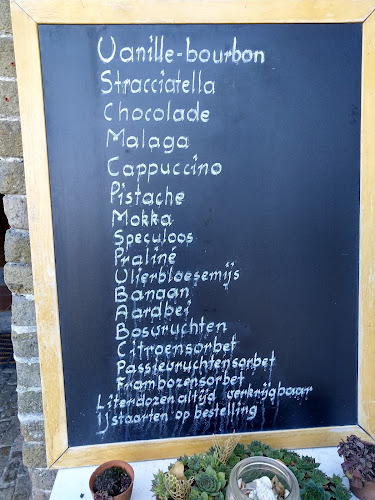 Vanille-bourbon
Stracciatella
Chocolade
Malaga
Cappuccino
Pistache
Mokka
Speculoos
Praliné
Vlierbloesemijs
Banaan
Aardbei
Bosvruchten
Citroensorbet
Passievruchtensorbet
Frambozensorbet
Literdozen altijd verkrijgbaar
Ijstaarten op bestelling